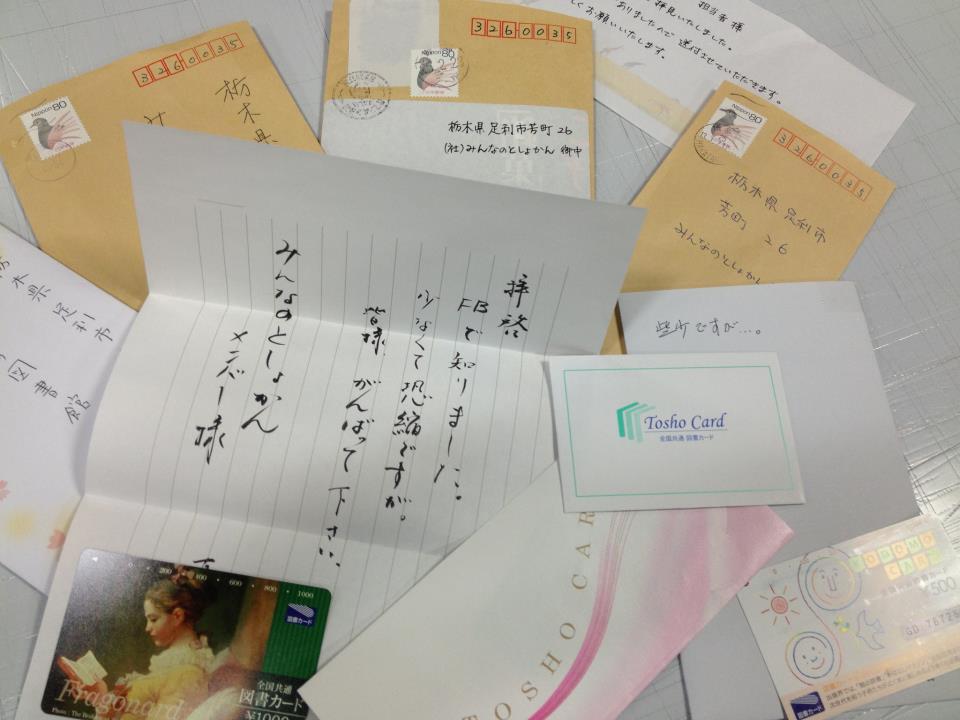 3260035
Nippon 80
栃木県
み
3260035
Nippon 80
栃木県足利市芳町26
(社)みんなのとしょかん 御中
担当者様
拝見いたしました。
ありましたので 送付させていただきます。
くお願いいたします。
Nippon 80
3260035
栃木県足利市
芳町 26
みんなのとしょかん
栃木県足利市
図書館
拝啓
FBで知りました。
少なくて恐縮ですが。
皆様 がんばって下さい。
みんなのとしょかん
メンバー様
些少ですが…。
Tosho Card
全国共通 図書カード
TOSHO CAR
200 400 600 800 1000
図書カード
Fragonard
全国共通
図書カード
¥1000
¥500
図書カード